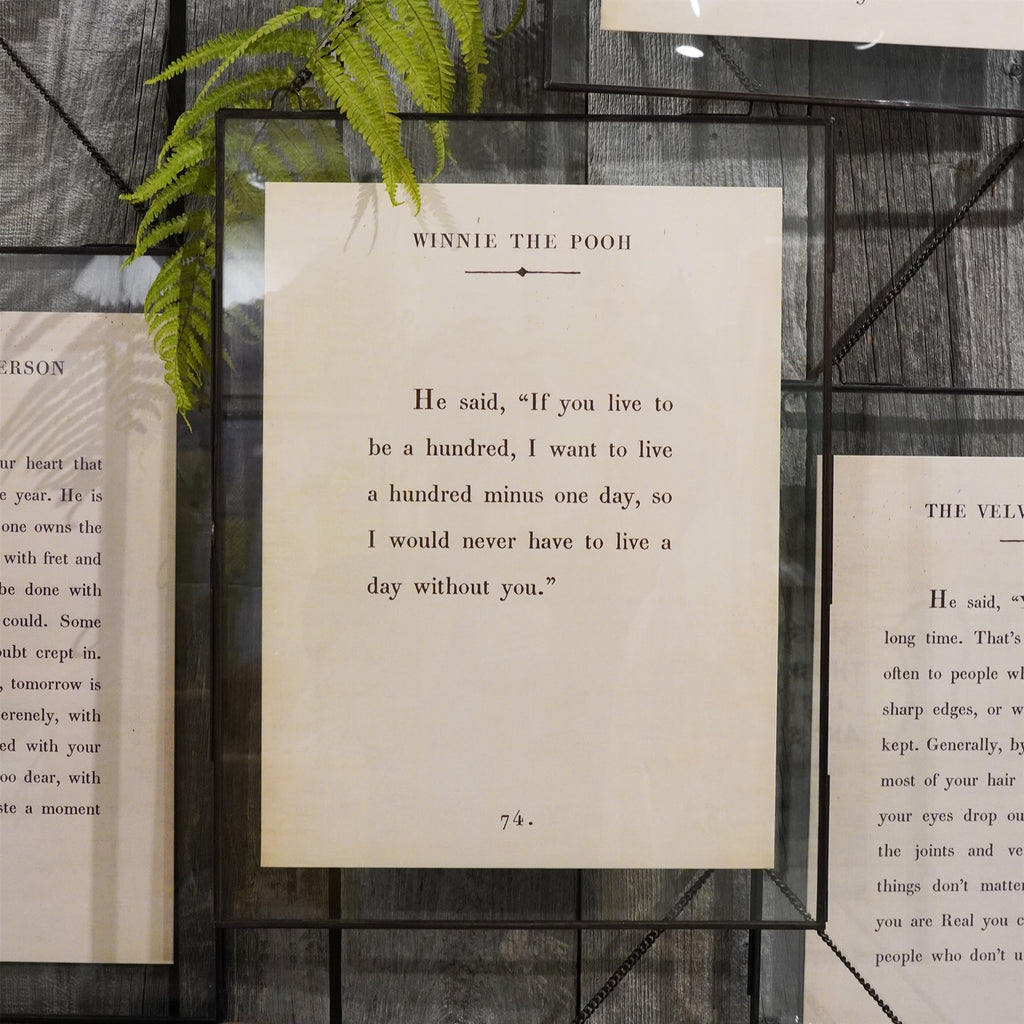 WINNIE THE POOH
He said, “If you live to
be a hundred, I want to live
a hundred minus one day, so
I would never have to live a
day without you.”
74.
heart that
year. He is
one owns the
with fret and
be done with
could. Some
crept in.
, tomorrow is
with
with your
dear, with
a moment
THE
He said, “
long time. That’s
often to people
sharp edges, or
kept. Generally,
most of your hair
your eyes drop
the joints and
things don’t
you are Real you
people who don’t